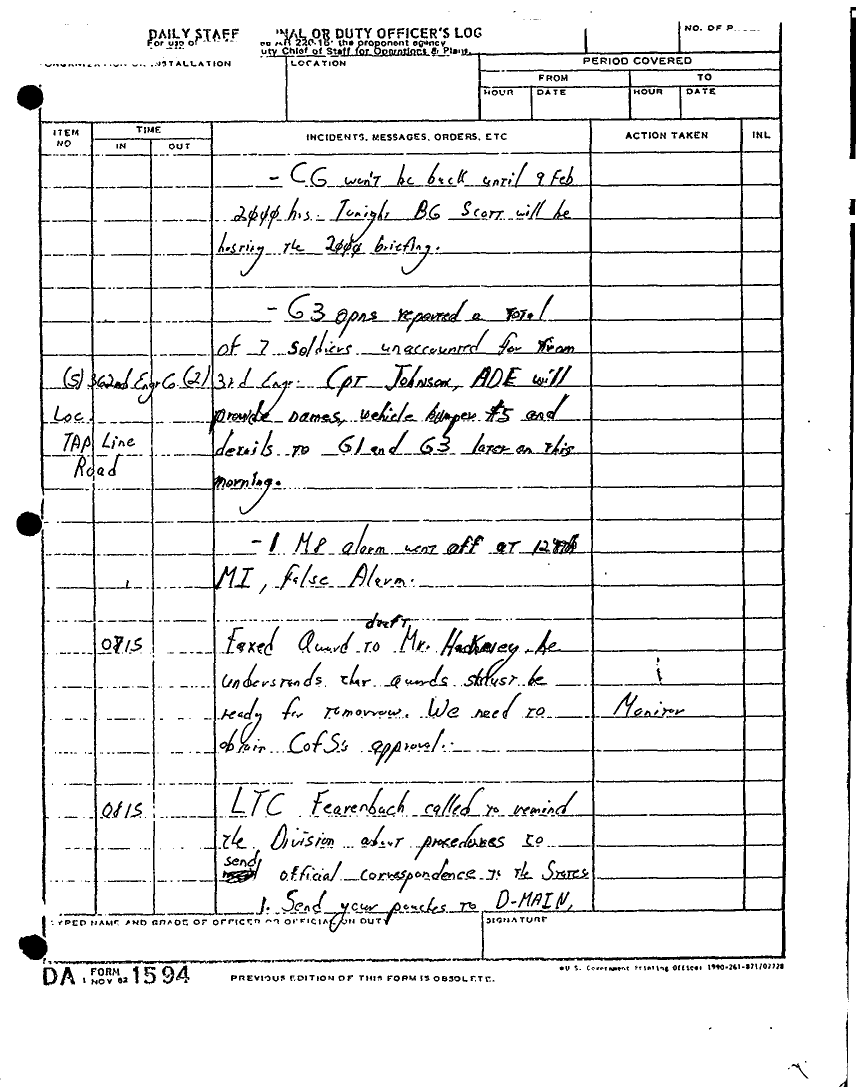 DAILY STAFF NAL OR DUTY OFFICER'S LOG
For use of AR 220-15; the proponent agency
uty Chief of Staff for Operations & Plans.
NO. OF P
INSTALLATION
LOCATION
PERIOD COVERED
FROM
TO
HOUR
DATE
HOUR
DATE
ITEM NO
TIME
IN
OUT
INCIDENTS, MESSAGES, ORDERS, ETC
ACTION TAKEN
INL
- CG won't be back until 9 Feb
2000 hrs. Tonight BG Scott will be
hosting the 2000 briefing.
- G3 opns reported a total
of 7 soldiers unaccounted for from
(5) 362nd Engr Co. (2) 3rd Engr. Cpt Johnson, ADE will
Loc. provide names, vehicle bumper #S and
TAP Line details to G1 and G3 later on this
Road
morning.
- 1 M8 alarm went off at
MI, False Alarm.
0815 Faxed Quard draft to Mr. he
understands that quards must be
ready for tomorrow. We need to Monitor
obtain CofS's approval.
0815 LTC Fearenbach called to remind
the Division about procedures to
send official correspondence to the States
1. Send your pouches to D-MAIN,
TYPED NAME AND GRADE OF OFFICER OR OFFICIAL ON DUTY
SIGNATURE
DA FORM 1 NOV 62 1594
PREVIOUS EDITION OF THIS FORM IS OBSOLETE.
U.S. Government Printing Office: 1990-261-871/02728